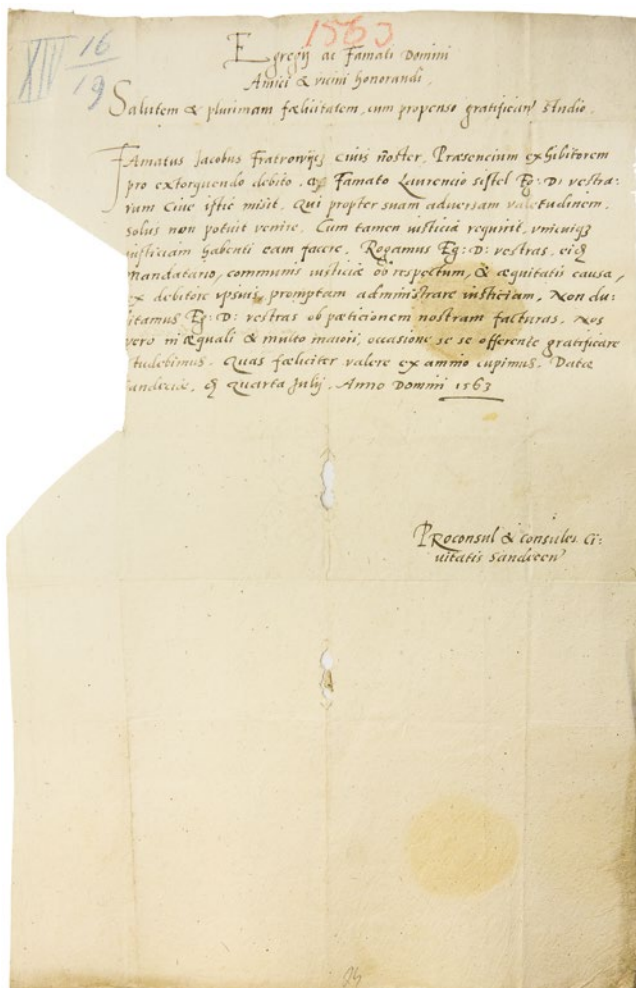 1563
XIV 16/19
Egregij ac Famati Domini
Amici & vicini honorandi.
Salutem & plurimam fœlicitatem, cum propenso gratificandi studio.
FAmatus Jacobus civis noster, Præsencium exhibitorem
pro extorquendo debito, Famato Laurencio sistel Eg: D: vestra:
rum Cive istic misit. Qui propter suam adversam valetudinem,
solus non potuit venire. Cum tamen iusticia requirit, unicuiqꝫ
iusticiam habenti eam facere. Rogamus Eg: D: vestras,
mandatario, communis iusticiæ ob respectum, & æquitatis causa,
ex debitore ipsius promptam administrare iusticiam. Non du:
bitamus Eg: D: vestras ob pæticionem nostram facturas. Nos
vero in æquali & multo maiori, occasione se se offerente gratificare
studebimus. Quas fœliciter valere ex animo cupimus. Datæ
Sandeciæ, Quarta Julij. Anno Domini 1563
PRoconsul & Consules Ci:
vitatis Sandecen